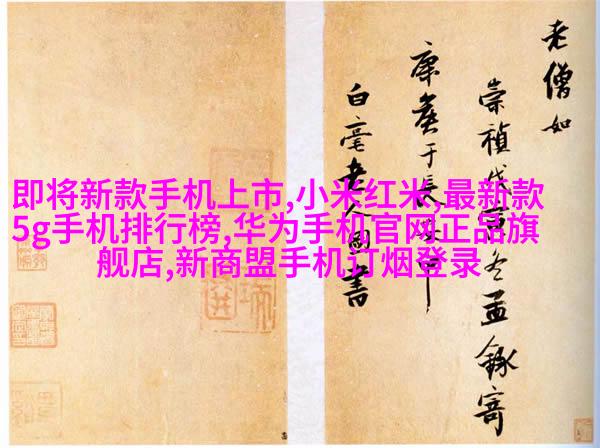 即将新款手机上市,小米红米,最新款
5g手机排行榜,华为手机官网正品旗
舰店,新商盟手机订烟登录
老僧如
崇禎戊寅冬孟録寄
康矦于長安中
白毫老人國書